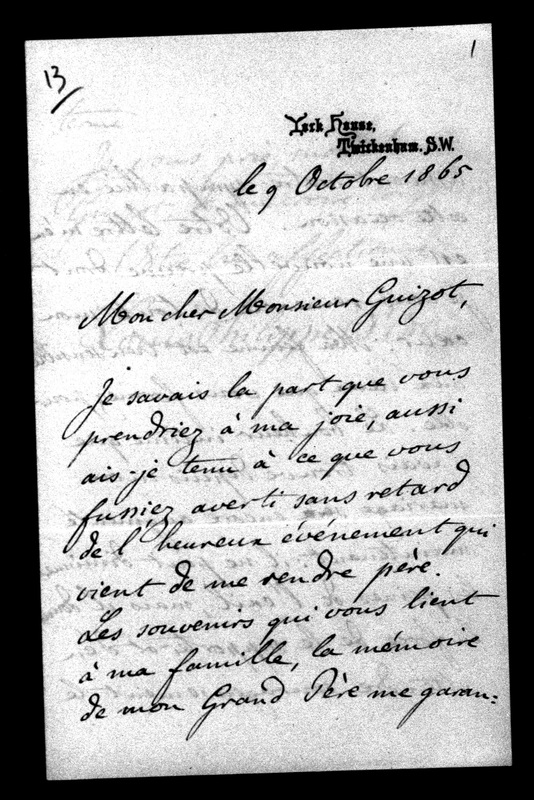 13
1
York House,
Twickenham. S.W.
le 9 Octobre 1865
Mon cher Monsieur Guizot,
Je savais la part que vous
prendriez à ma joie, aussi
ais-je tenu à ce que vous
fussiez averti sans retard
de l'heureux événement qui
vient de me rendre père.
Les souvenirs qui vous lient
à ma famille, la mémoire
de mon Grand Père me garan=